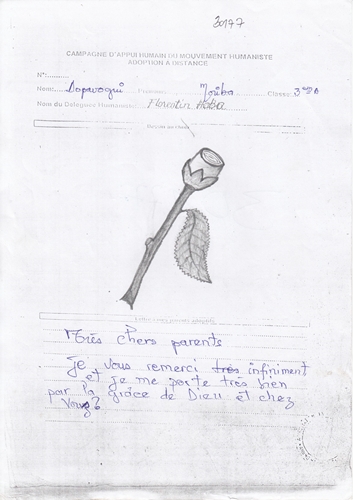 30177
CAMPAGNE D'APPUI HUMAIN DU MOUVEMENT HUMANISTE
ADOPTION A DISTANCE
N°:
Nom: Sapavogui Prénoms: Moriba Classe: 3
Nom du Délégué Humaniste: Florentin Haba
Dessin au choix
Lettre à mes parents adoptifs
Très chers parents
Je vous remerci très infiniment
et je me porte très bien
par la grâce de Dieu et chez
Vous?